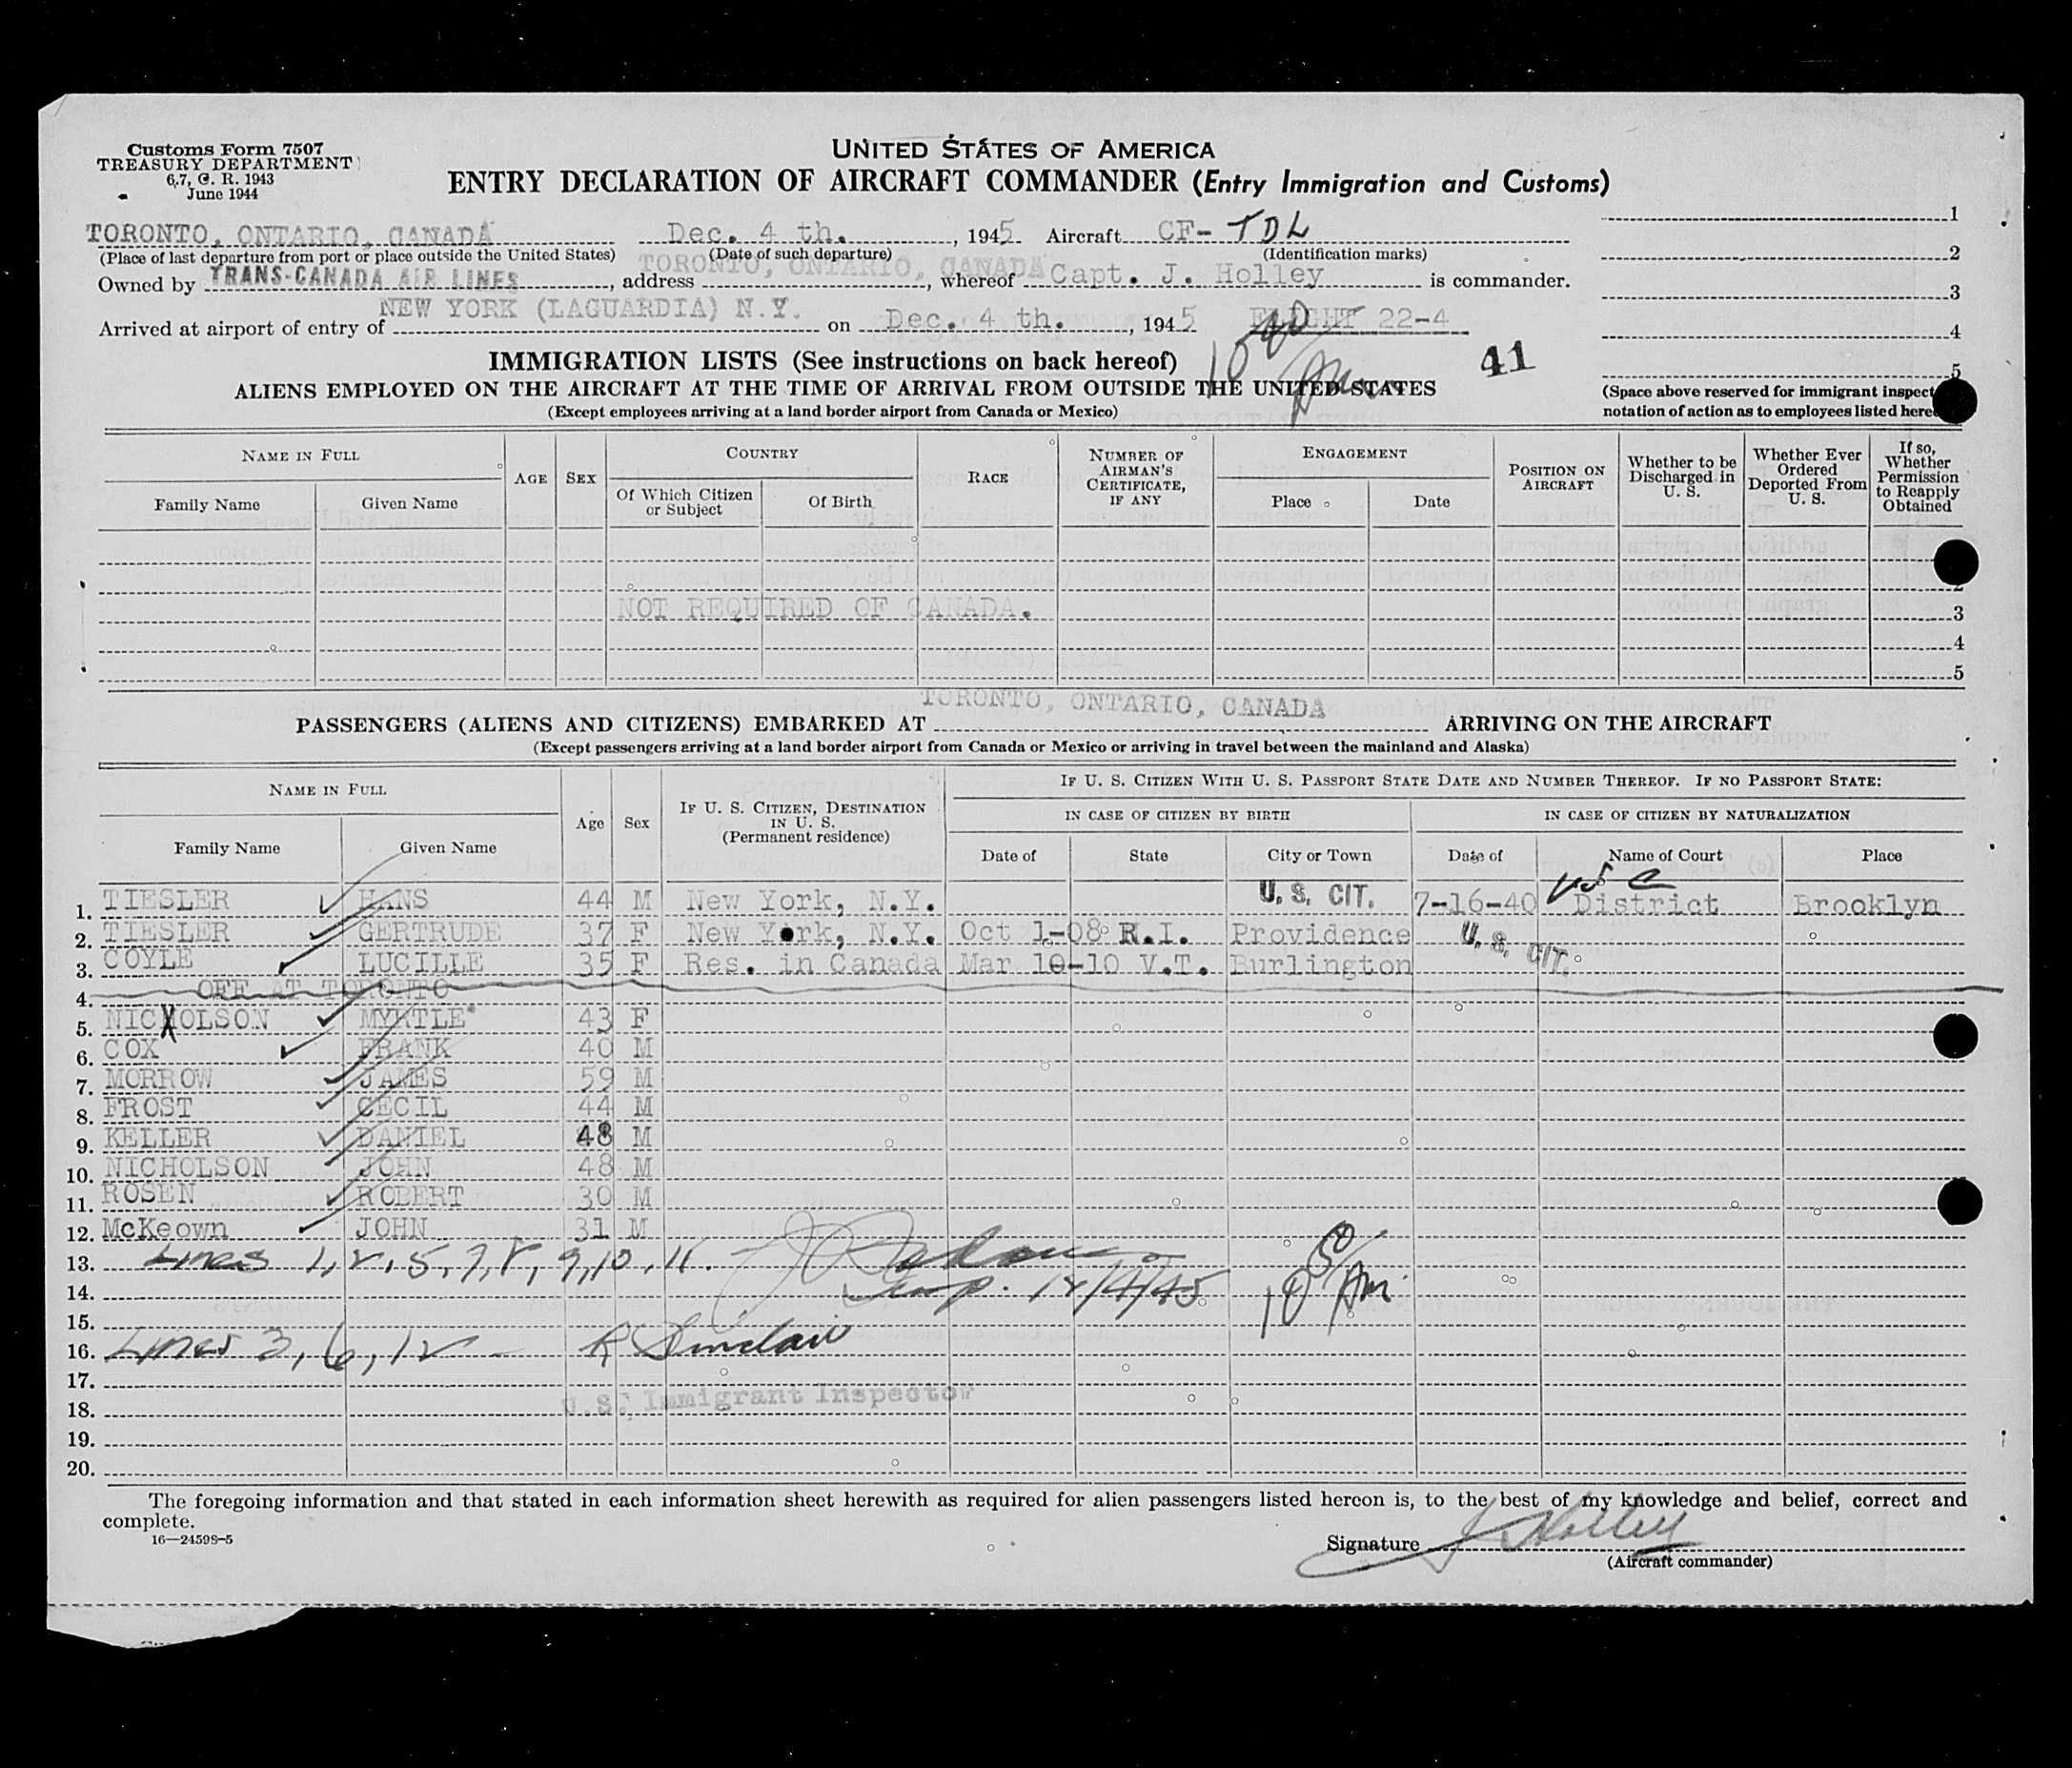 Customs Form 7507
TREASURY DEPARTMENT
6.7, C. R. 1943
June 1944
UNITED STATES OF AMERICA
ENTRY DECLARATION OF AIRCRAFT COMMANDER (Entry Immigration and Customs)
TORONTO, ONTARIO, CANADA Dec. 4 th. , 1945 Aircraft CF-TDL
(Place of last departure from port or place outside the United States) (Date of such departure) (Identification marks)
Owned by TRANS-CANADA AIR LINES, address TORONTO, ONTARIO, CANADA, whereof Capt. J. Holley is commander.
Arrived at airport of entry of NEW YORK (LAGUARDIA) N.Y. on Dec. 4 th. , 1945 FLIGHT 22-4
1
2
3
4
5
IMMIGRATION LISTS (See instructions on back hereof) 41
ALIENS EMPLOYED ON THE AIRCRAFT AT THE TIME OF ARRIVAL FROM OUTSIDE THE UNITED STATES
(Except employees arriving at a land border airport from Canada or Mexico)
(Space above reserved for immigrant inspect
notation of action as to employees listed here
NAME IN FULL AGE SEX COUNTRY RACE NUMBER OF AIRMAN'S CERTIFICATE, IF ANY ENGAGEMENT POSITION ON AIRCRAFT Whether to be Discharged in U. S. Whether Ever Ordered Deported From U. S. If so, Whether Permission to Reapply Obtained
Family Name Given Name Of Which Citizen or Subject Of Birth Place Date
2
NOT REQUIRED OF CANADA. 3
4
5
PASSENGERS (ALIENS AND CITIZENS) EMBARKED AT TORONTO, ONTARIO, CANADA ARRIVING ON THE AIRCRAFT
(Except passengers arriving at a land border airport from Canada or Mexico or arriving in travel between the mainland and Alaska)
NAME IN FULL Age Sex IF U. S. CITIZEN, DESTINATION IN U. S. (Permanent residence) IF U. S. CITIZEN WITH U. S. PASSPORT STATE DATE AND NUMBER THEREOF. IF NO PASSPORT STATE:
IN CASE OF CITIZEN BY BIRTH IN CASE OF CITIZEN BY NATURALIZATION
Family Name Given Name Date of State City or Town Date of Name of Court Place
1. TIESLER HANS 44 M New York, N.Y. U. S. CIT. 7-16-40 U S District Brooklyn
2. TIESLER GERTRUDE 37 F New York, N.Y. Oct 1-08 R.I. Providence U. S. CIT.
3. COYLE LUCILLE 35 F Res. in Canada Mar 10-10 V.T. Burlington
4. OFF AT TORONTO
5. NICHOLSON MYRTLE 43 F
6. COX FRANK 40 M
7. MORROW JAMES 59 M
8. FROST CECIL 44 M
9. KELLER DANIEL 48 M
10. NICHOLSON JOHN 48 M
11. ROSEN ROBERT 30 M
12. McKeown JOHN 31 M
13. Lines 1, 2, 5, 7, 8, 9, 10, 11.
14. Insp. 12/4/45 10 AM
15.
16. Lines 3, 6, 12 - R Sinclair
17.
18. U.S. Immigrant Inspector
19.
20.
The foregoing information and that stated in each information sheet herewith as required for alien passengers listed hereon is, to the best of my knowledge and belief, correct and
complete.
16—24598-5
Signature J Holley
(Aircraft commander)